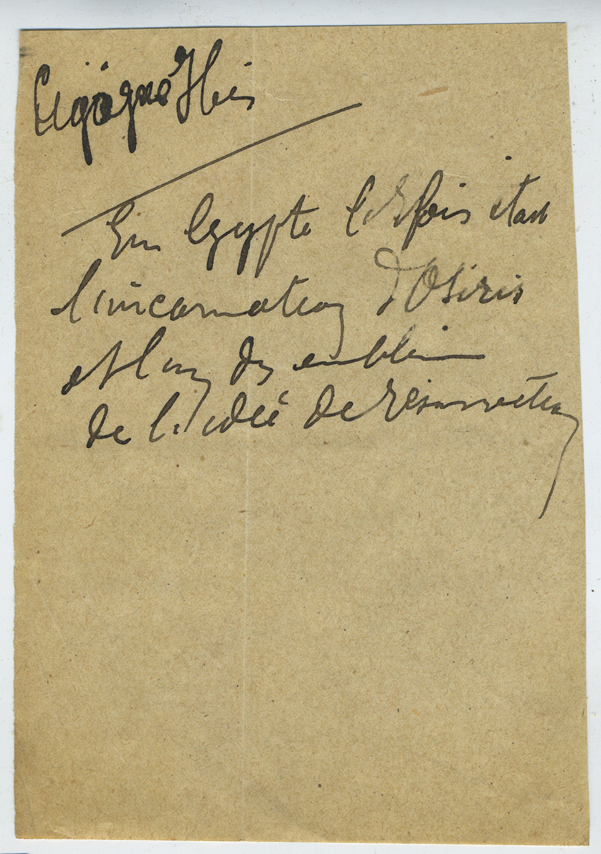 Cigogne Ibis
En Egypte l'Ibis était
l'incarnation d'Osiris
et l'un des emblèmes
de l'idée de résurrection